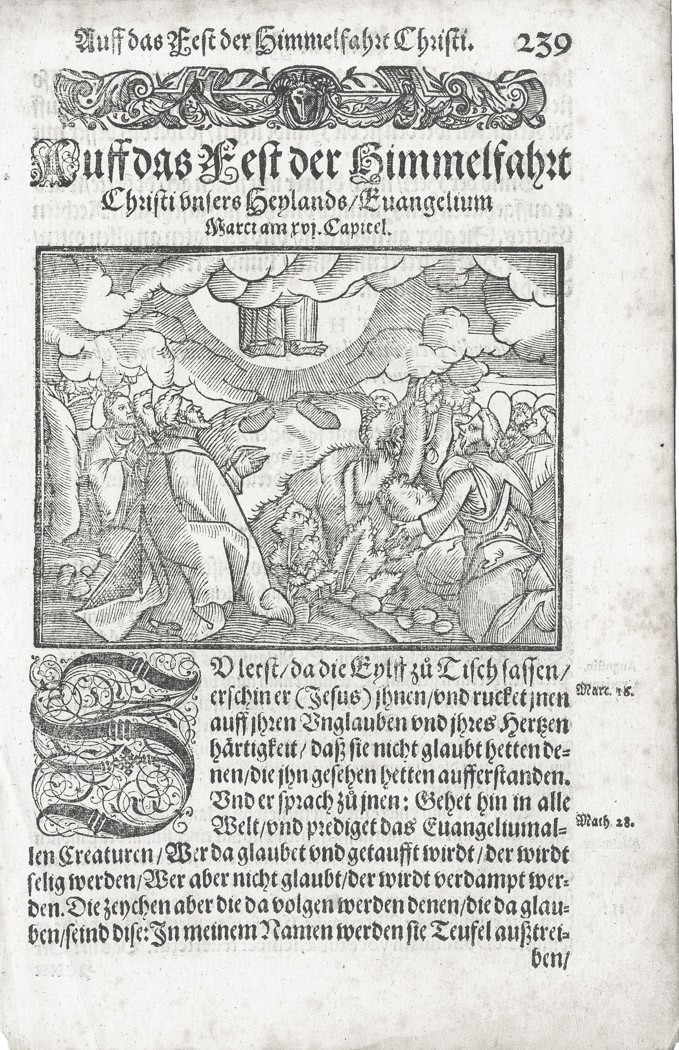 Auff das Fest der Himmelfahrt Christi. 239
Auff das Fest der Himmelfahrt
Christi vnsers Heylands/Euangelium
Marci am xvj. Capitel.
ZV letst/da die Eylff zů Tisch sassen/
erschin er (Jesus) jhnen/vnd rucket jnen
auff jhren Vnglauben vnd jhres Hertzen
härtigkeit/daß sie nicht glaubt hetten de-
nen/die jhn gesehen hetten aufferstanden.
Vnd er sprach zů jnen: Gehet hin in alle
Welt/vnd prediget das Euangelium al-
len Creaturen/Wer da glaubet vnd getaufft wirdt/der wirdt
selig werden/Wer aber nicht glaubt/der wirdt verdampt wer-
den. Die zeychen aber die da volgen werden denen/die da glau-
ben/seind dise: In meinem Namen werden sie Teufel außtrei-
ben/
Marc. 16.
Math. 28.